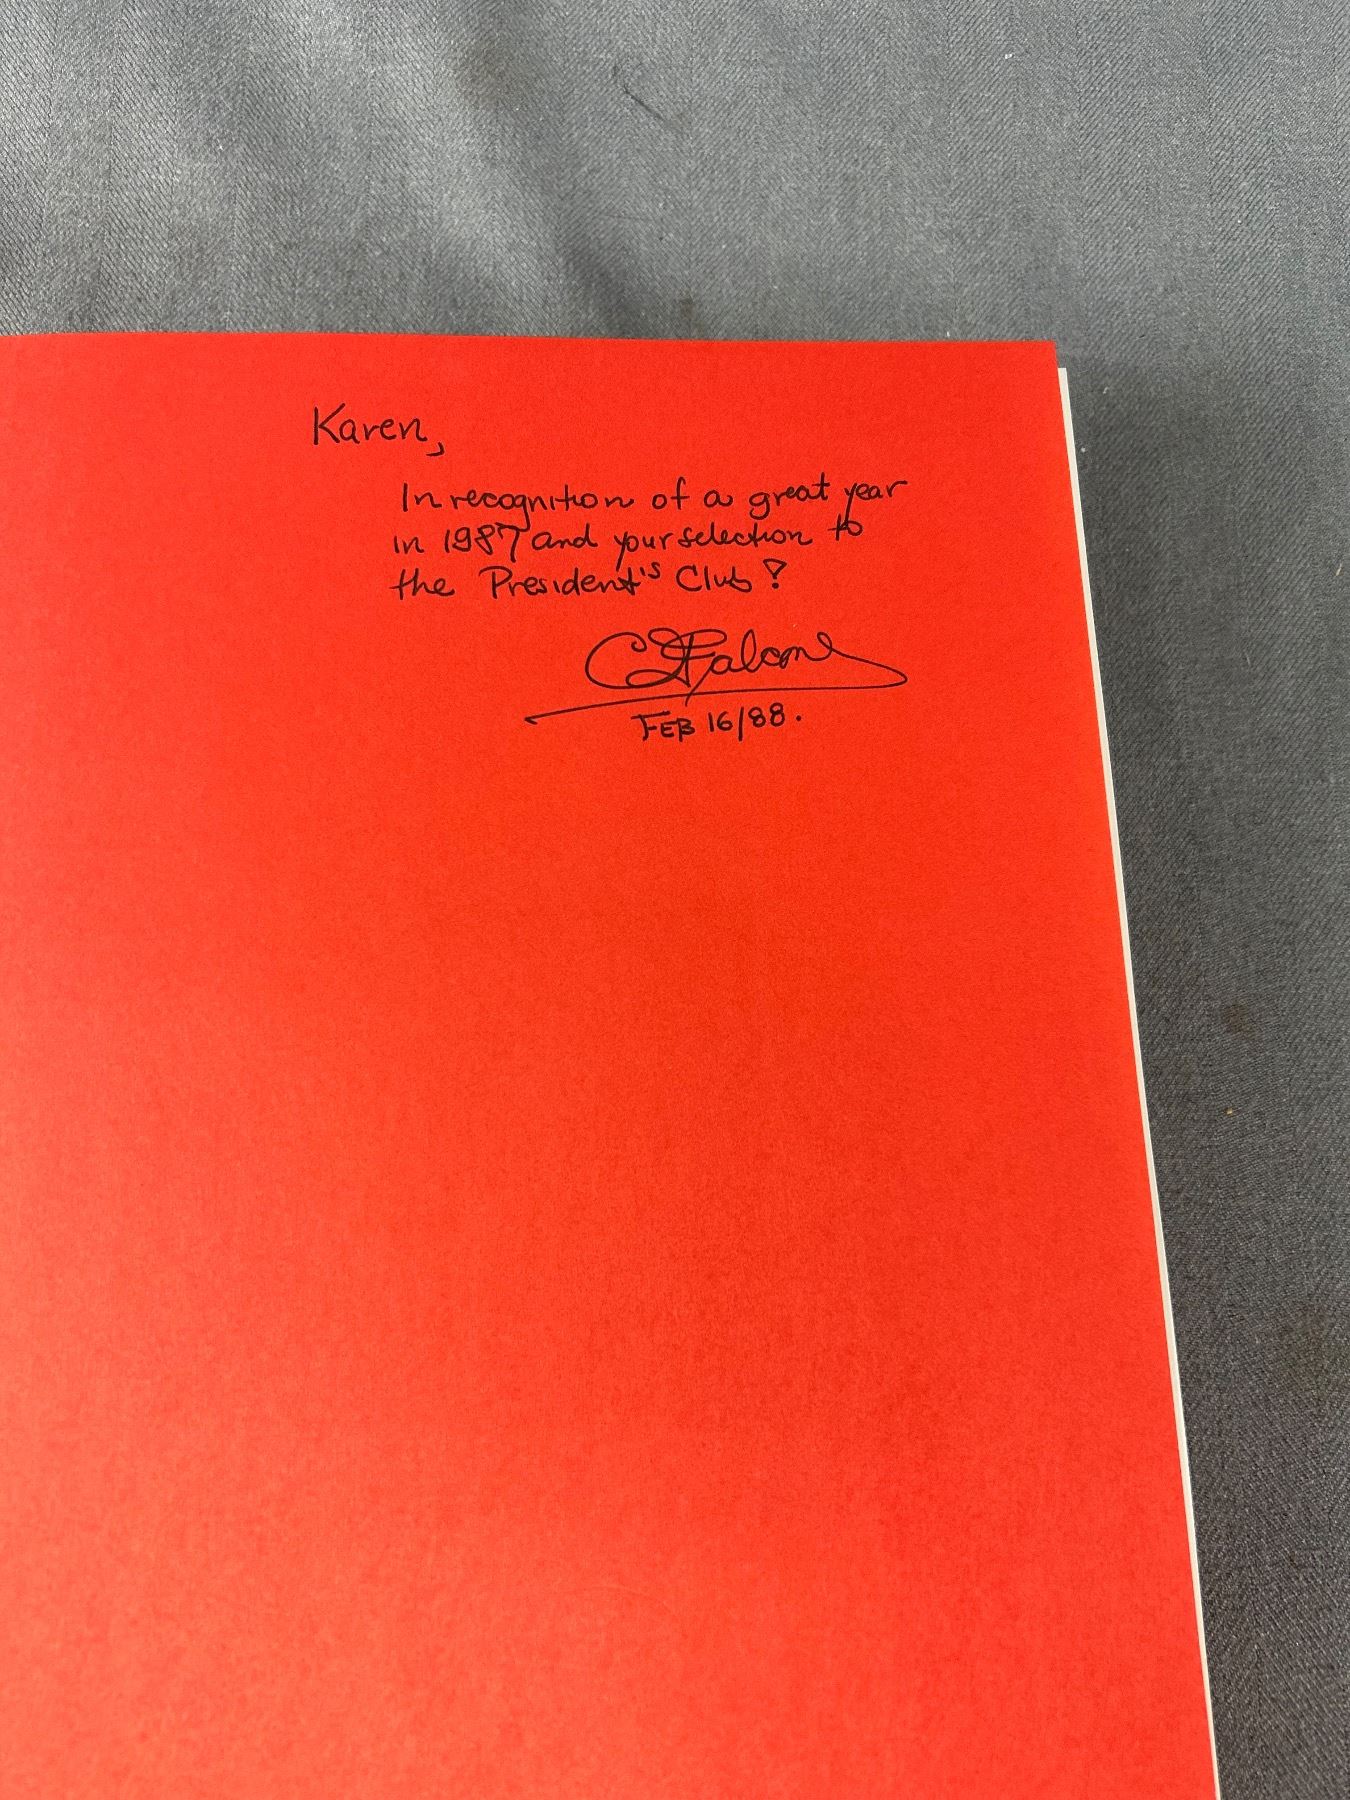 Karen,
In recognition of a great year
in 1987 and your selection to
the President's Club!
C Falcone
FEB 16/88.